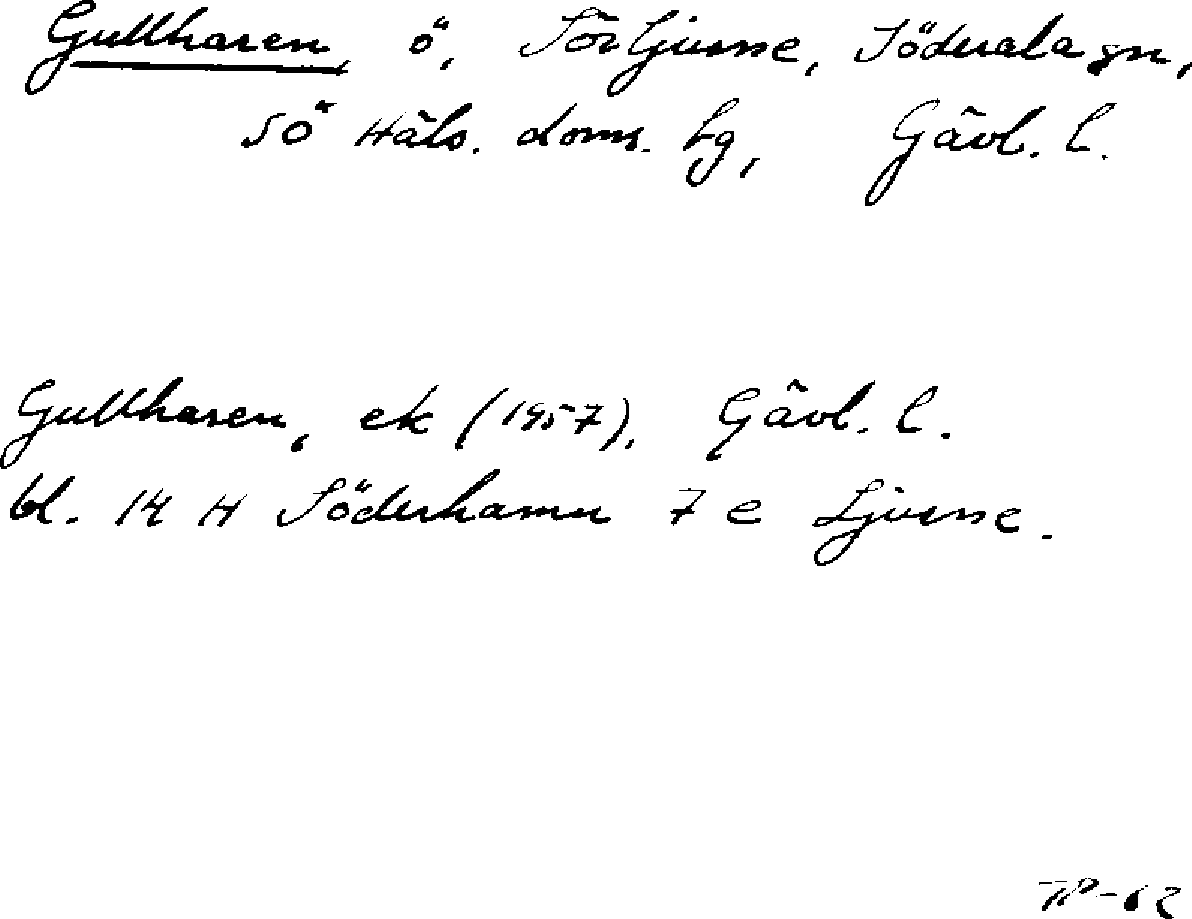 Gullharen, ö, Sör Ljusne, Söderala sn,
SÖ Häls. doms. tg, Gävl. l.
Gullharen, ek (1957), Gävl. l.
bl. 14 H Söderhamn 7 e Ljusne.
TP-62